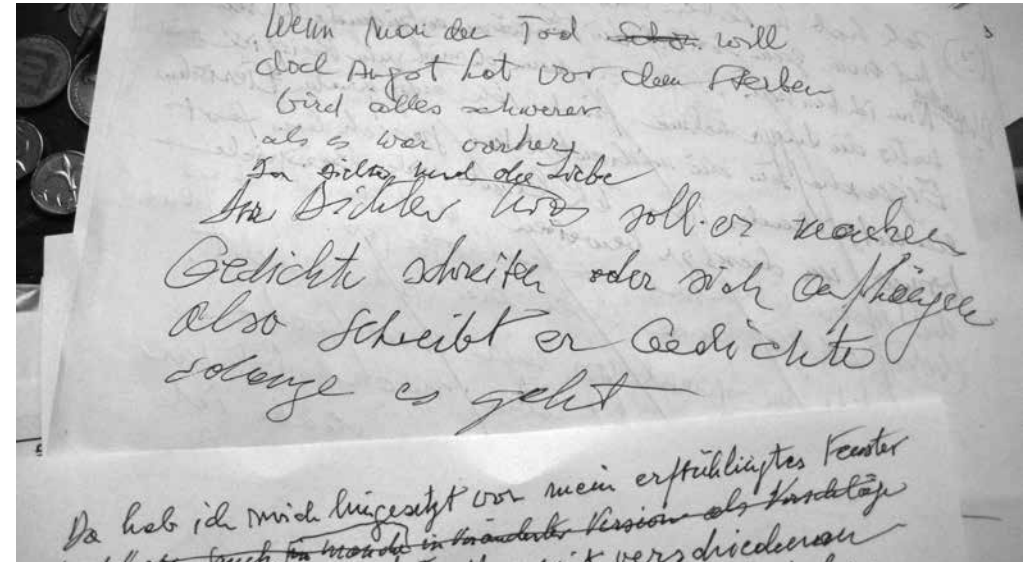 Wenn man den Tod schon will
doch Angst hat vor dem Sterben
wird alles schwerer
als es war vorher
Der Dichter und die Liebe
Der Dichter was soll er machen
Gedichte schreiben oder sich aufhängen
also schreibt er Gedichte
solange es geht
Da hab ich mich hingesetzt vor mein erfrühlingtes Fenster
auch in manche in veränderter Version als Vorschläge
verschiedenen